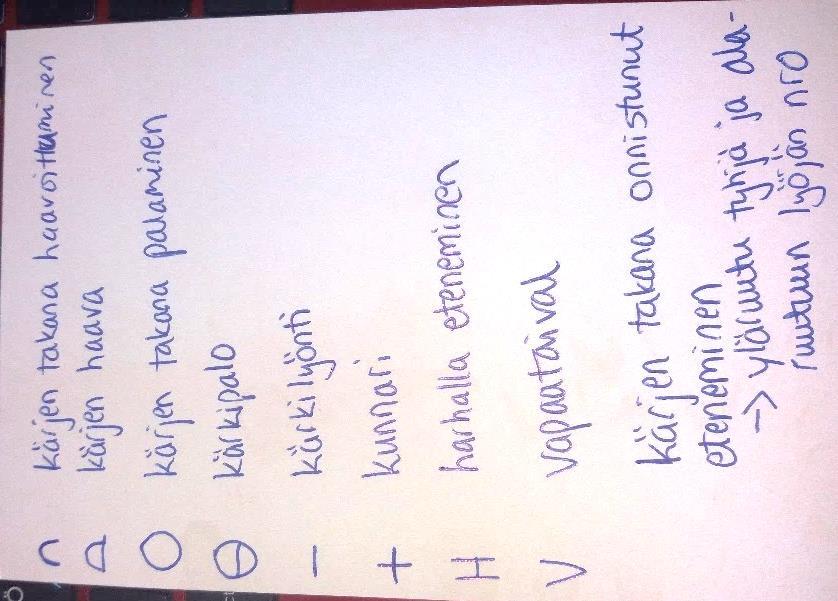 ∩ kärjen takana haavoittuminen
⌓ kärjen haava
○ kärjen takana palaminen
⊖ kärkipalo
– kärkilyönti
+ kunnari
H harhalla eteneminen
V vapaataival
kärjen takana onnistunut
eteneminen
-> yläruutu tyhjä ja ala-
ruutuun lyöjän nro